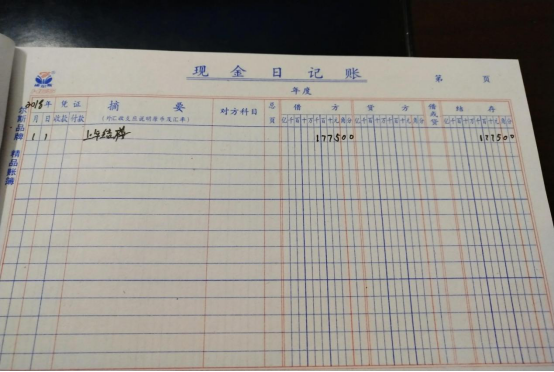 现金日记账
第 页
年度
2018年 凭证 摘要 对方科目 总页 借方 贷方 借或贷 结存
月 日 收款 付款 (外汇收支应说明原币及汇率) 亿千百十万千百十元角分 亿千百十万千百十元角分 亿千百十万千百十元角分
1 1 上年结转 177500 177500
精品帐簿